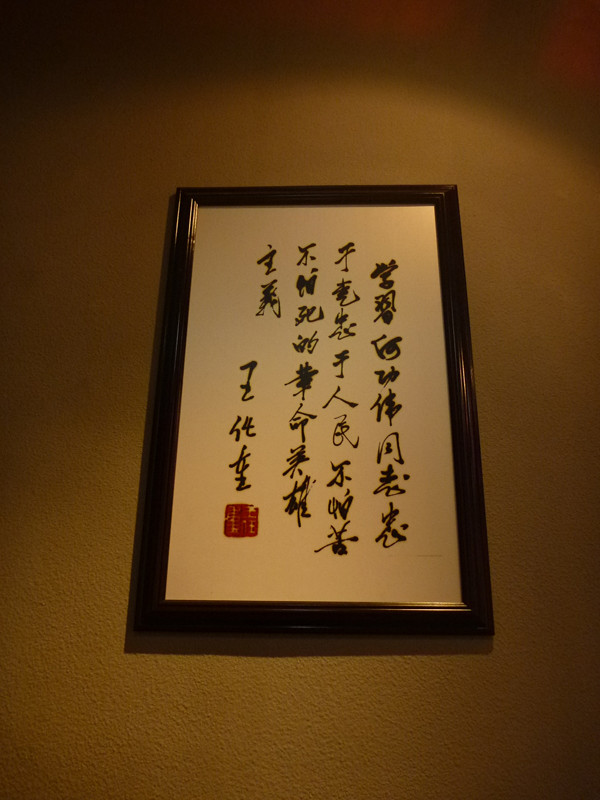 学習何功伟同志忠
于党忠于人民不怕苦
不怕死的革命英雄
主義
王任重